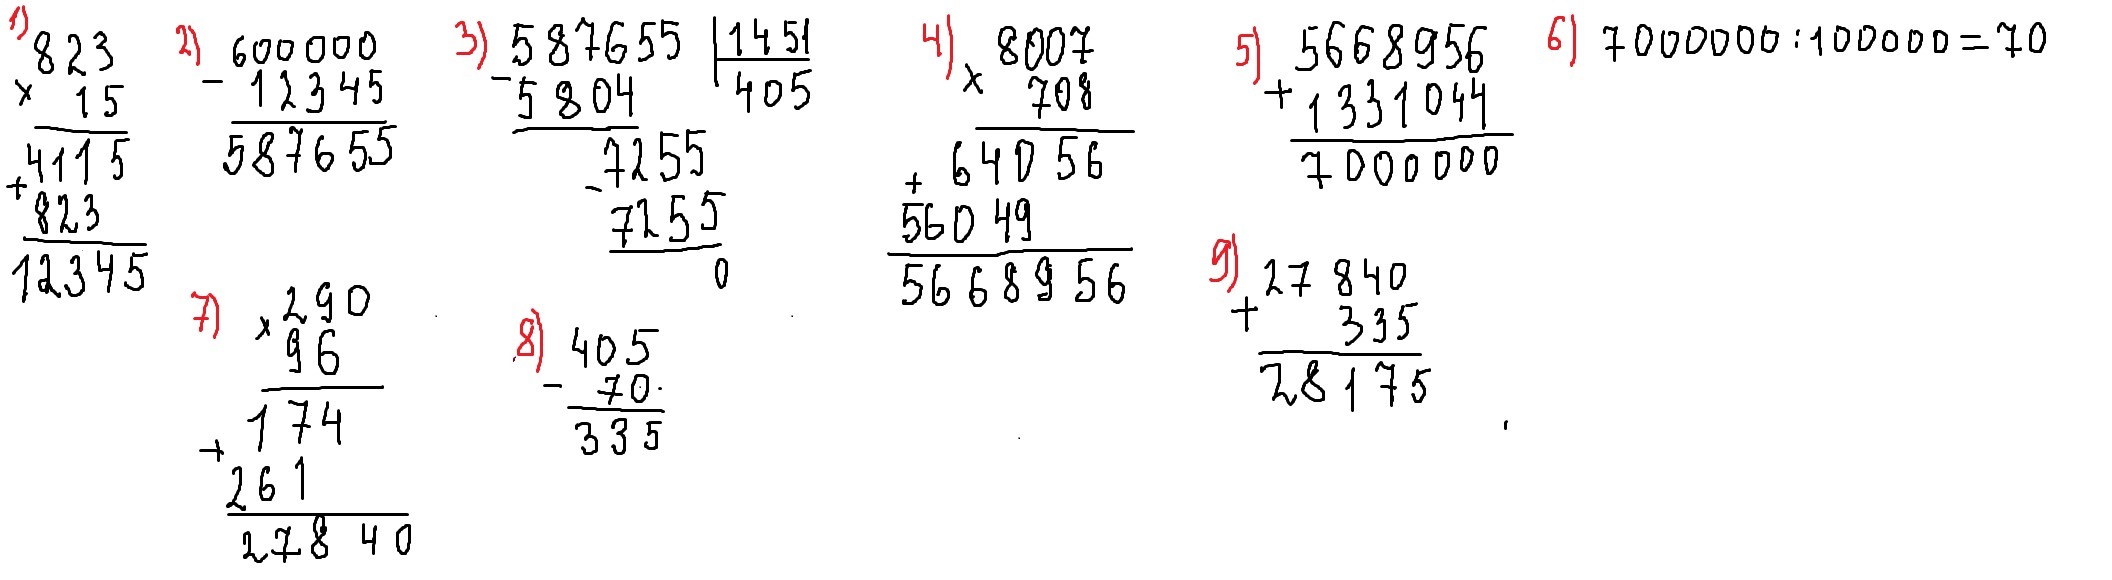 1) 823
× 15
4115
+ 823
12345
2) 600000
- 12345
587655
3) 587655 | 1451
- 5804 405
7255
- 7255
0
4) 8007
× 708
64056
+
56049
5668956
5) 5668956
+ 1331044
7000000
6) 7000000:100000=70
7) × 290
96
174
+ 261
27840
8) 405
- 70
335
9) 27840
+ 335
28175